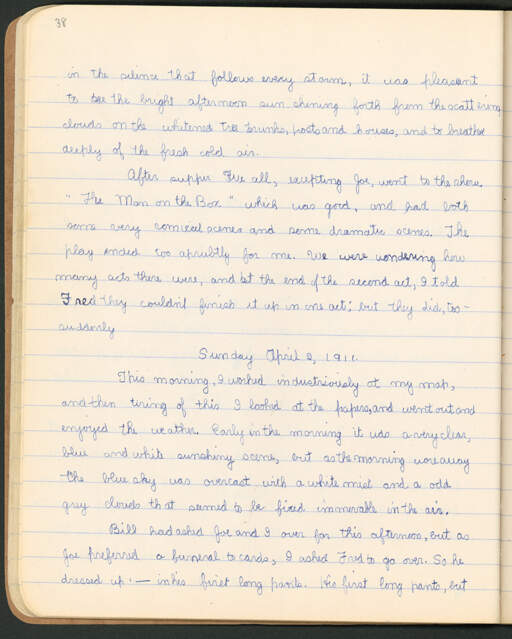 38
in the silence that follows every storm, it was pleasant
to see the bright afternoon sun shening forth from the scattering
clouds on the whitened tree trunks, posts and houses, and to breathe
deeply of the fresh cold air.
After supper we all, excepting Joe, went to the show.
"The Man on the Box" which was good, and had both
some very comical scenes and some dramatic scenes. The
play ended too abrubtly for me. We were wondering how
many acts there were, and at the end of the second act, I told
Fred they couldn't finish it up in one act; but they did, too-
suddenly
Sunday April 2, 1911
This morning, I worked industriously at my map,
and then tiring of this I looked at the papers, and went out and
enjoyed the weather. Early in the morning it was a very clear,
blue and white sunshiny scene, but as the morning wore away
the blue sky was overcast with a white mist and a odd
grey clouds that seemed to be fixed immovable in the air.
Bill had asked Joe and I over for this afternoon, but as
Joe preferred a funeral to cards, I asked Fred to go over. So he
dressed up - — in his first long pants. His first long pants, but